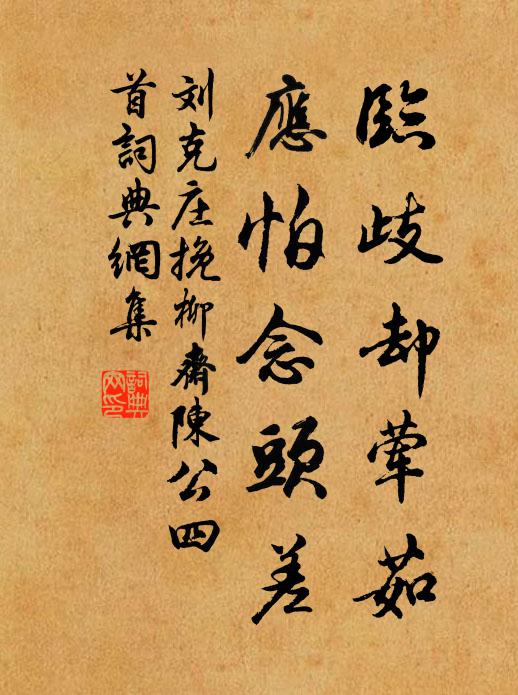 臨歧却葷茹
應怕念頭差
刘克庄挽柳齋陳公四
首詞典網集
詞典網印